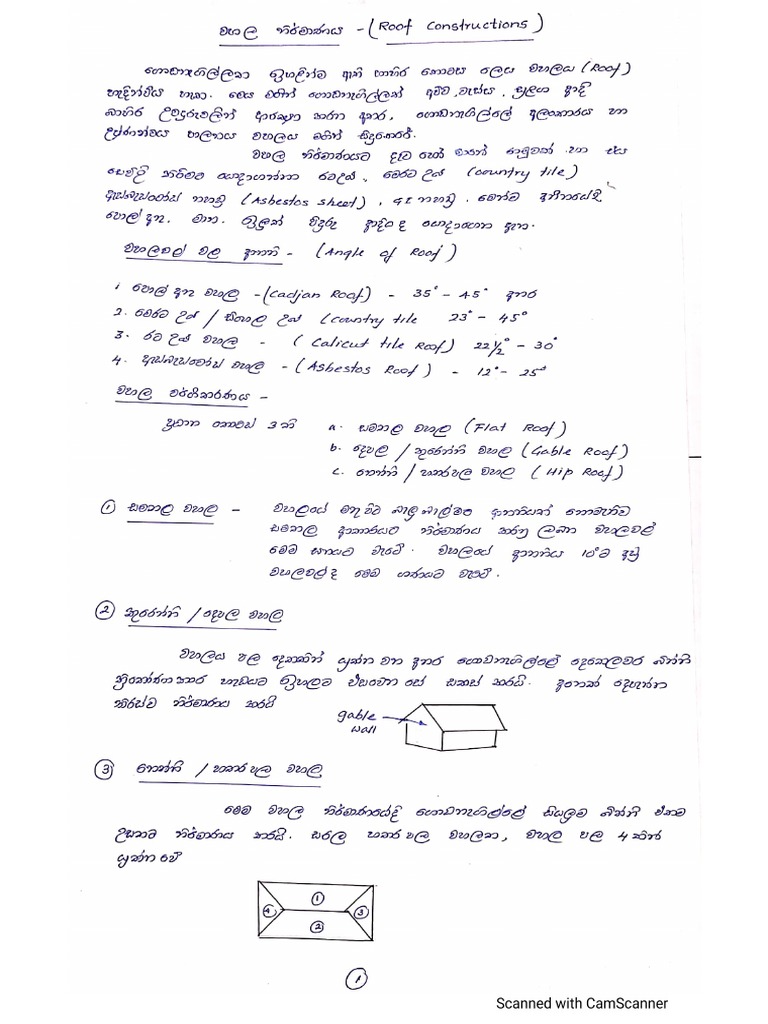 වහල නිර්මාණය - (Roof Constructions)
ගොඩනැගිල්ලක ඉහළින්ම ඇති බාහිර කොටස ලෙස වහලය (Roof)
හැඳින්විය හැක. මෙය මගින් ගොඩනැගිල්ලක් අව්ව, වැස්ස, සුලග ආදී
බාහිර උවදුරුවලින් ආරක්ෂා කරන අතර, ගොඩනැගිල්ලේ අලංකාරය හා
උෂ්ණත්වය පාලනය වහලය මගින් සිදුකෙරේ.
වහල නිර්මාණයට දැව හෝ රාමුවක් හා එය
සෙවිලි කිරීමට යොදාගන්නා රටඋළු, මෙරට උළු (country tile)
ඇස්බැස්ටෝස් තහඩු (Asbestos sheet), GI තහඩු. මෙන්ම අතීතයේදී
පොල් අතු, මානා, ඉලුක් පිදුරු ආදියද යොදාගෙන ඇත.
වහලවල් වල ආනති - (Angle of Roof)
1 පොල් අතු වහල - (Cadjan Roof) - 35° - 45° අතර
2. මෙරට උළු / සිංහල උළු (Country tile 23° - 45°
3. රට උළු වහල - (Calicut tile Roof) 22½° - 30°
4. ඇස්බැස්ටෝස් වහල - (Asbestos Roof) - 12° - 25°
වහල වර්ගීකරණය -
ප්‍රධාන කොටස් 3 කි a. සමතල වහල (Flat Roof)
b. දෙපල / කුරොන්ති වහල (Gable Roof)
c. ගොන්ති / හතරපල වහල (Hip Roof)
① සමතල වහල - වහලයේ මතුපිට බැලූ බැල්මට ආනතියක් නොමැතිව
සමතල ආකාරයට නිර්මාණය කරනු ලබන වහලවල්
මෙම ගණයට වැටේ. වහලයේ ආනතිය 10°ට අඩු
වහලවල් ද මෙම ගණයට වැටේ.
② කුරොන්ති / දෙපල වහල
වහලය පල දෙකකින් යුක්ත වන අතර ගොඩනැගිල්ලේ දෙකෙලවර බිත්ති
ත්‍රිකෝණාකාර හැඩයට ඉහලට එසවෙන සේ සකස් කරයි. අනෙක් දෙපැත්ත
තිරස්ව නිර්මාණය කරයි
gable
wall
③ ගොන්ති / හතර පල වහල
මෙම වහල නිර්මාණයේදී ගොඩනැගිල්ලේ සියලුම බිත්ති එකම
උසකට නිර්මාණය කරයි. සරල හතර පල වහලක, වහල පල 4 කින්
යුක්ත වේ
①
④ ③
②
①
Scanned with CamScanner